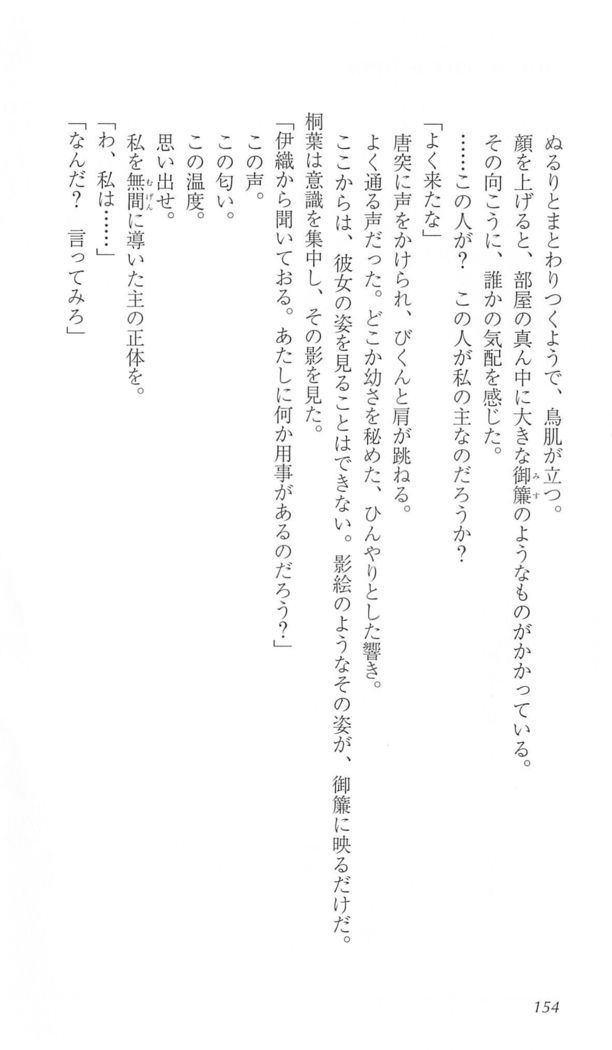 ぬるりとまとわりつくようで、鳥肌が立つ。
顔を上げると、部屋の真ん中に大きな御簾のようなものがかかっている。
その向こうに、誰かの気配を感じた。
……この人が？　この人が私の主なのだろうか？
「よく来たな」
唐突に声をかけられ、びくんと肩が跳ねる。
よく通る声だった。どこか幼さを秘めた、ひんやりとした響き。
ここからは、彼女の姿を見ることはできない。影絵のようなその姿が、御簾に映るだけだ。
桐葉は意識を集中し、その影を見た。
「伊織から聞いておる。あたしに何か用事があるのだろう？」
この声。
この匂い。
この温度。
思い出せ。
私を無間に導いた主の正体を。
「わ、私は……」
「なんだ？　言ってみろ」
154